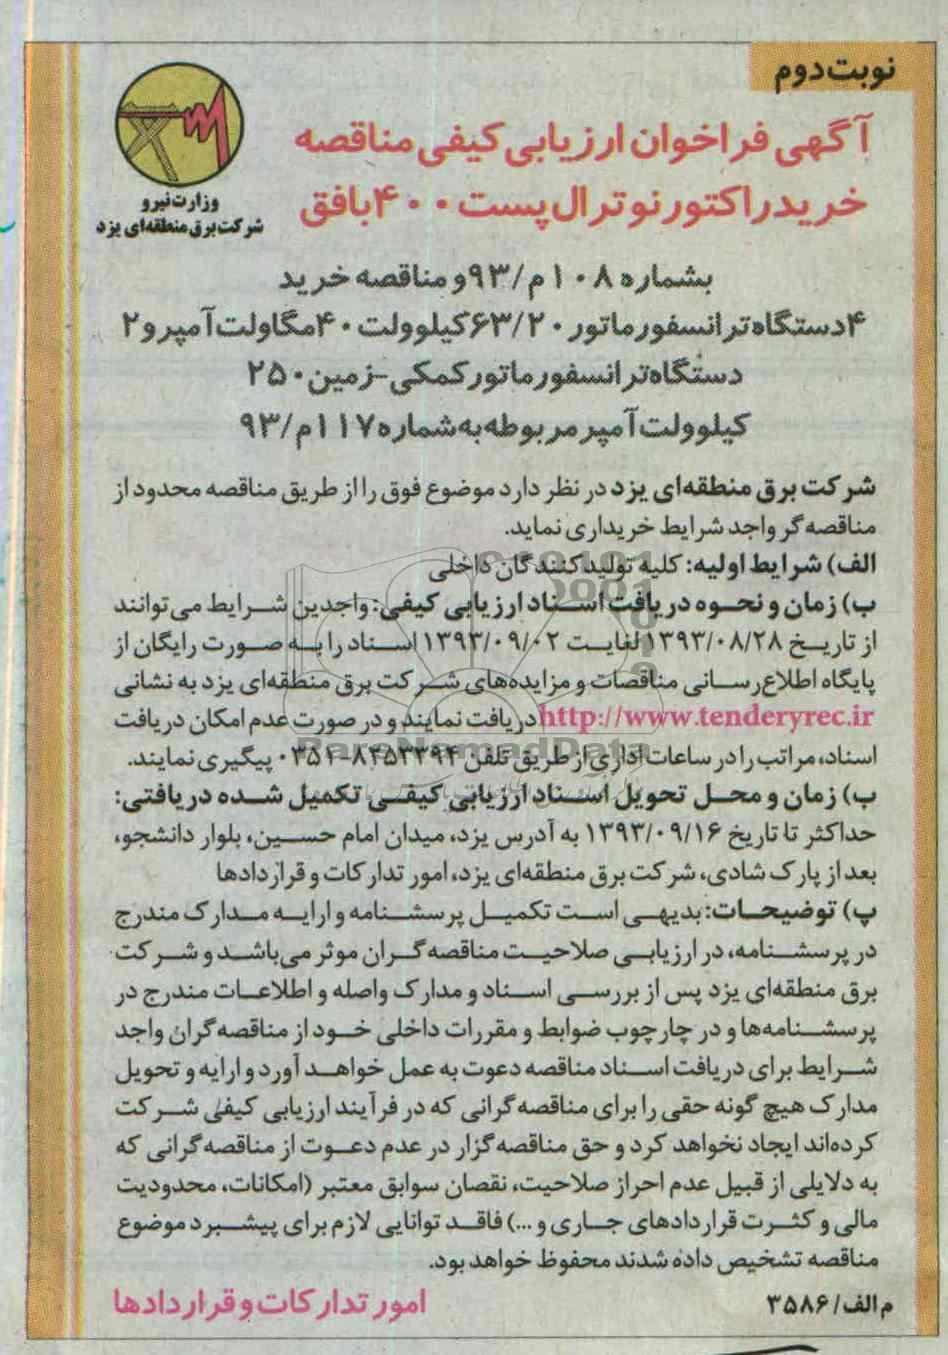 نوبت دوم
آگهی فراخوان ارزیابی کیفی مناقصه
خرید راکتور نوترال پست ۴۰۰ بافق
وزارت نیرو
شرکت برق منطقه‌ای یزد
بشماره ۱۰۸م/۹۳ و مناقصه خرید
۴دستگاه ترانسفورماتور ۶۳/۲۰ کیلوولت ۴۰ مگاولت آمپر و ۲
دستگاه ترانسفورماتور کمکی-زمین ۲۵۰
کیلوولت آمپر مربوطه به شماره ۱۱۷م/۹۳
شرکت برق منطقه‌ای یزد در نظر دارد موضوع فوق را از طریق مناقصه محدود از
مناقصه‌گر واجد شرایط خریداری نماید.
الف) شرایط اولیه: کلیه تولیدکنندگان داخلی
ب) زمان و نحوه دریافت اسناد ارزیابی کیفی: واجدین شرایط می‌توانند
از تاریخ ۱۳۹۳/۰۸/۲۸ لغایت ۱۳۹۳/۰۹/۰۲ اسناد را به صورت رایگان از
پایگاه اطلاع‌رسانی مناقصات و مزایده‌های شرکت برق منطقه‌ای یزد به نشانی
http://www.tenderyrec.ir دریافت نمایند و در صورت عدم امکان دریافت
اسناد، مراتب را در ساعات اداری از طریق تلفن ۸۲۵۳۳۹۴-۰۳۵۱ پیگیری نمایند.
ب) زمان و محل تحویل اسناد ارزیابی کیفی تکمیل شده دریافتی:
حداکثر تا تاریخ ۱۳۹۳/۰۹/۱۶ به آدرس یزد، میدان امام حسین، بلوار دانشجو،
بعد از پارک شادی، شرکت برق منطقه‌ای یزد، امور تدارکات و قراردادها
پ) توضیحات: بدیهی است تکمیل پرسشنامه و ارایه مدارک مندرج
در پرسشنامه، در ارزیابی صلاحیت مناقصه‌گران موثر می‌باشد و شرکت
برق منطقه‌ای یزد پس از بررسی اسناد و مدارک واصله و اطلاعات مندرج در
پرسشنامه‌ها و در چارچوب ضوابط و مقررات داخلی خود از مناقصه‌گران واجد
شرایط برای دریافت اسناد مناقصه دعوت به عمل خواهد آورد و ارایه و تحویل
مدارک هیچ گونه حقی را برای مناقصه‌گرانی که در فرآیند ارزیابی کیفی شرکت
کرده‌اند ایجاد نخواهد کرد و حق مناقصه‌گزار در عدم دعوت از مناقصه‌گرانی که
به دلایلی از قبیل عدم احراز صلاحیت، نقصان سوابق معتبر (امکانات، محدودیت
مالی و کثرت قراردادهای جاری و ...) فاقد توانایی لازم برای پیشبرد موضوع
مناقصه تشخیص داده شدند محفوظ خواهد بود.
م الف/۳۵۸۶
امور تدارکات و قراردادها